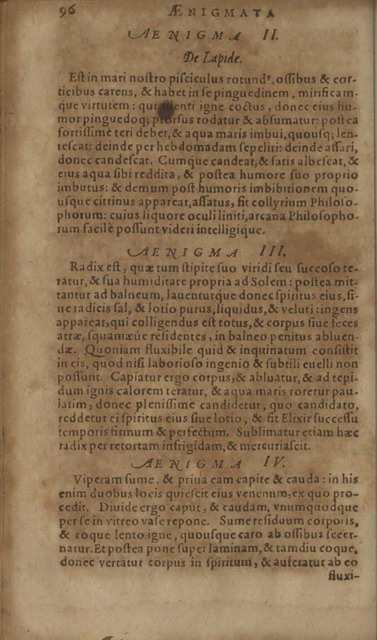 96 ÆNIGMATA
ÆNIGMA II.
De Lapide.
Est in mari nostro pisciculus rotundꝰ, ossibus & cor-
ticibus carens, & habet in se pinguedinem, mirificam-
que virtutem: qui lenti igne coctus, donec eius hu-
mor pinguedoq; prorsus rodatur & absumatur: postea
fortissimè teri debet, & aqua maris imbui, quousq; len-
tescat: deinde per hebdomadam sepeliri: deinde assari,
donec candescat. Cumque candeat, & satis albescat, &
eius aqua sibi reddita, & postea humore suo proprio
imbutus: & demum post humoris imbibitionem quo-
usque citrinus appareat, assatus, fit collyrium Philoso-
phorum: cuius liquore oculi liniti, arcana Philosopho-
rum facilè possunt videri intelligique.
ÆNIGMA III.
Radix est, quæ tum stipite suo viridi seu succoso te-
ratur, & sua humiditate propria ad Solem: postea mit-
tantur ad balneum, lauenturque donec spiritus eius, si-
ue radicis sal, & lotio purus, liquidus, & veluti tingens
appareat, qui colligendus est totus, & corpus siue feces
atræ, squamæúe residentes, in balneo penitus abluen-
dæ. Quoniam fluxibile quid & inquinatum consistit
in eis, quod nisi laborioso ingenio & subtili euelli non
possunt. Capiatur ergo corpus, & abluatur, & ad tepi-
dum ignis calorem teratur, & aqua maris roretur pau-
latim, donec plenissimè candidetur, quo candidato,
reddetur ei spiritus eius siue lotio, & fit Elixir successu
temporis firmum & perfectum. Sublimatur etiam hæc
radix per retortam infrigidam, & mercuriascit.
ÆNIGMA IV.
Viperam sume, & priua eam capite & cauda: in his
enim duobus locis quiescit eius venenum, ex quo pro-
cedit. Diuide ergo caput, & caudam, vnumquodque
per se in vitreo vase repone. Sume residuum corporis,
& coque lento igne, quousque caro ab ossibus secer-
natur. Et postea pone super laminam, & tamdiu coque,
donec vertatur corpus in spiritum, & auferatur ab eo
fluxi-